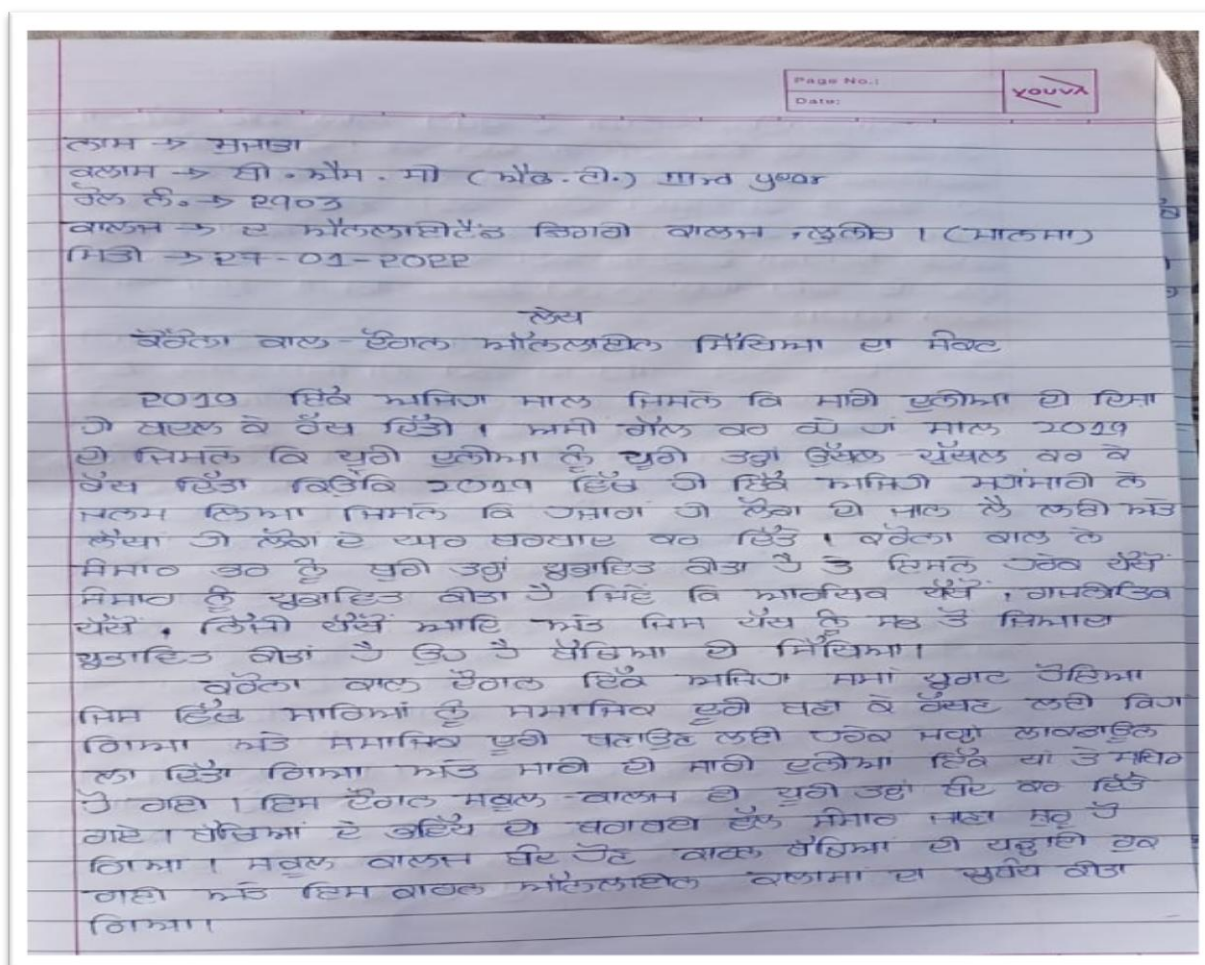 Page No.:
Date:
YOUVA
ਨਾਮ → ਸੁਜਾਤਾ
ਕਲਾਸ → ਬੀ.ਐਸ.ਸੀ (ਐਫ.ਟੀ.) IIIrd year
ਰੋਲ ਨੰ. → ੨੧੦੩
ਕਾਲਜ → ਦ ਐਨਲਾਈਟੈਂਡ ਡਿਗਰੀ ਕਾਲਜ, (ਮਾਨਸਾ)
ਮਿਤੀ → ੨੭-੦੧-੨੦੨੨
ਲੇਖ
ਕੋਰੋਨਾ ਕਾਲ - ਦੌਰਾਨ ਔਨਲਾਈਨ ਸਿੱਖਿਆ ਦਾ ਸੰਕਟ
੨੦੧੯ ਇੱਕ ਅਜਿਹਾ ਸਾਲ ਜਿਸਨੇ ਕਿ ਸਾਰੀ ਦੁਨੀਆ ਦੀ ਦਿਸ਼ਾ
ਹੀ ਬਦਲ ਕੇ ਰੱਖ ਦਿੱਤੀ । ਅਸੀਂ ਗੱਲ ਕਰ ਰਹੇ ਹਾਂ ਸਾਲ 2019
ਦੀ ਜਿਸਨੇ ਕਿ ਪੂਰੀ ਦੁਨੀਆ ਨੂੰ ਪੂਰੀ ਤਰ੍ਹਾਂ ਉੱਥਲ-ਪੁੱਥਲ ਕਰ ਕੇ
ਰੱਖ ਦਿੱਤਾ ਕਿਉਂਕਿ 2019 ਵਿੱਚ ਹੀ ਇੱਕ ਅਜਿਹੀ ਮਹਾਂਮਾਰੀ ਨੇ
ਜਨਮ ਲਿਆ ਜਿਸਨੇ ਕਿ ਹਜ਼ਾਰਾਂ ਹੀ ਲੋਕਾਂ ਦੀ ਜਾਨ ਲੈ ਲਈ ਅਤੇ
ਲੱਖਾਂ ਹੀ ਲੋਕਾਂ ਦੇ ਘਰ ਬਰਬਾਦ ਕਰ ਦਿੱਤੇ । ਕਰੋਨਾ ਕਾਲ ਨੇ
ਸੰਸਾਰ ਭਰ ਨੂੰ ਬੁਰੀ ਤਰ੍ਹਾਂ ਪ੍ਰਭਾਵਿਤ ਕੀਤਾ ਹੈ ਤੇ ਇਸਨੇ ਹਰੇਕ ਪੱਖੋਂ
ਸੰਸਾਰ ਨੂੰ ਪ੍ਰਭਾਵਿਤ ਕੀਤਾ ਹੈ ਜਿਵੇਂ ਕਿ ਆਰਥਿਕ ਪੱਖੋਂ, ਰਾਜਨੀਤਿਕ
ਪੱਖੋਂ, ਨਿੱਜੀ ਪੱਖੋਂ ਆਦਿ ਅਤੇ ਜਿਸ ਪੱਖ ਨੂੰ ਸਭ ਤੋਂ ਜ਼ਿਆਦਾ
ਪ੍ਰਭਾਵਿਤ ਕੀਤਾਂ ਹੈ ਉਹ ਹੈ ਬੱਚਿਆ ਦੀ ਸਿੱਖਿਆ।
ਕਰੋਨਾ ਕਾਲ ਦੌਰਾਨ ਇੱਕ ਅਜਿਹਾ ਸਮਾਂ ਪ੍ਰਗਟ ਹੋਇਆ
ਜਿਸ ਵਿੱਚ ਸਾਰਿਆਂ ਨੂੰ ਸਮਾਜਿਕ ਦੂਰੀ ਬਣਾ ਕੇ ਰੱਖਣ ਲਈ ਕਿਹਾ
ਗਿਆ ਅਤੇ ਸਮਾਜਿਕ ਦੂਰੀ ਬਣਾਉਣ ਲਈ ਹਰੇਕ ਜਗ੍ਹਾ ਲਾਕਡਾਊਨ
ਲਾ ਦਿੱਤਾ ਗਿਆ ਅਤੇ ਸਾਰੀ ਦੀ ਸਾਰੀ ਦੁਨੀਆ ਇੱਕ ਥਾਂ ਤੇ ਸਥਿਰ
ਹੋ ਗਈ । ਇਸ ਦੌਰਾਨ ਸਕੂਲ-ਕਾਲਜ ਵੀ ਪੂਰੀ ਤਰ੍ਹਾਂ ਬੰਦ ਕਰ ਦਿੱਤੇ
ਗਏ । ਬੱਚਿਆਂ ਦੇ ਭਵਿੱਖ ਦੀ ਬਰਾਬਰੀ ਵੱਲ ਸੰਸਾਰ ਜਾਣਾ ਸ਼ੁਰੂ ਹੋ
ਗਿਆ । ਸਕੂਲ ਕਾਲਜ ਬੰਦ ਹੋਣ ਕਾਰਨ ਬੱਚਿਆ ਦੀ ਪੜ੍ਹਾਈ ਰੁਕ
ਗਈ ਅਤੇ ਇਸ ਕਾਰਨ ਔਨਲਾਈਨ ਕਲਾਸਾਂ ਦਾ ਪ੍ਰਬੰਧ ਕੀਤਾ
ਗਿਆ।